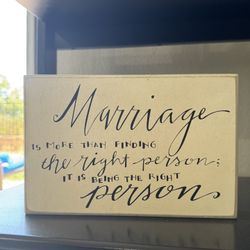 Marriage
IS MORE THAN FINDING
the right person;
IT IS BEING THE RIGHT
person.